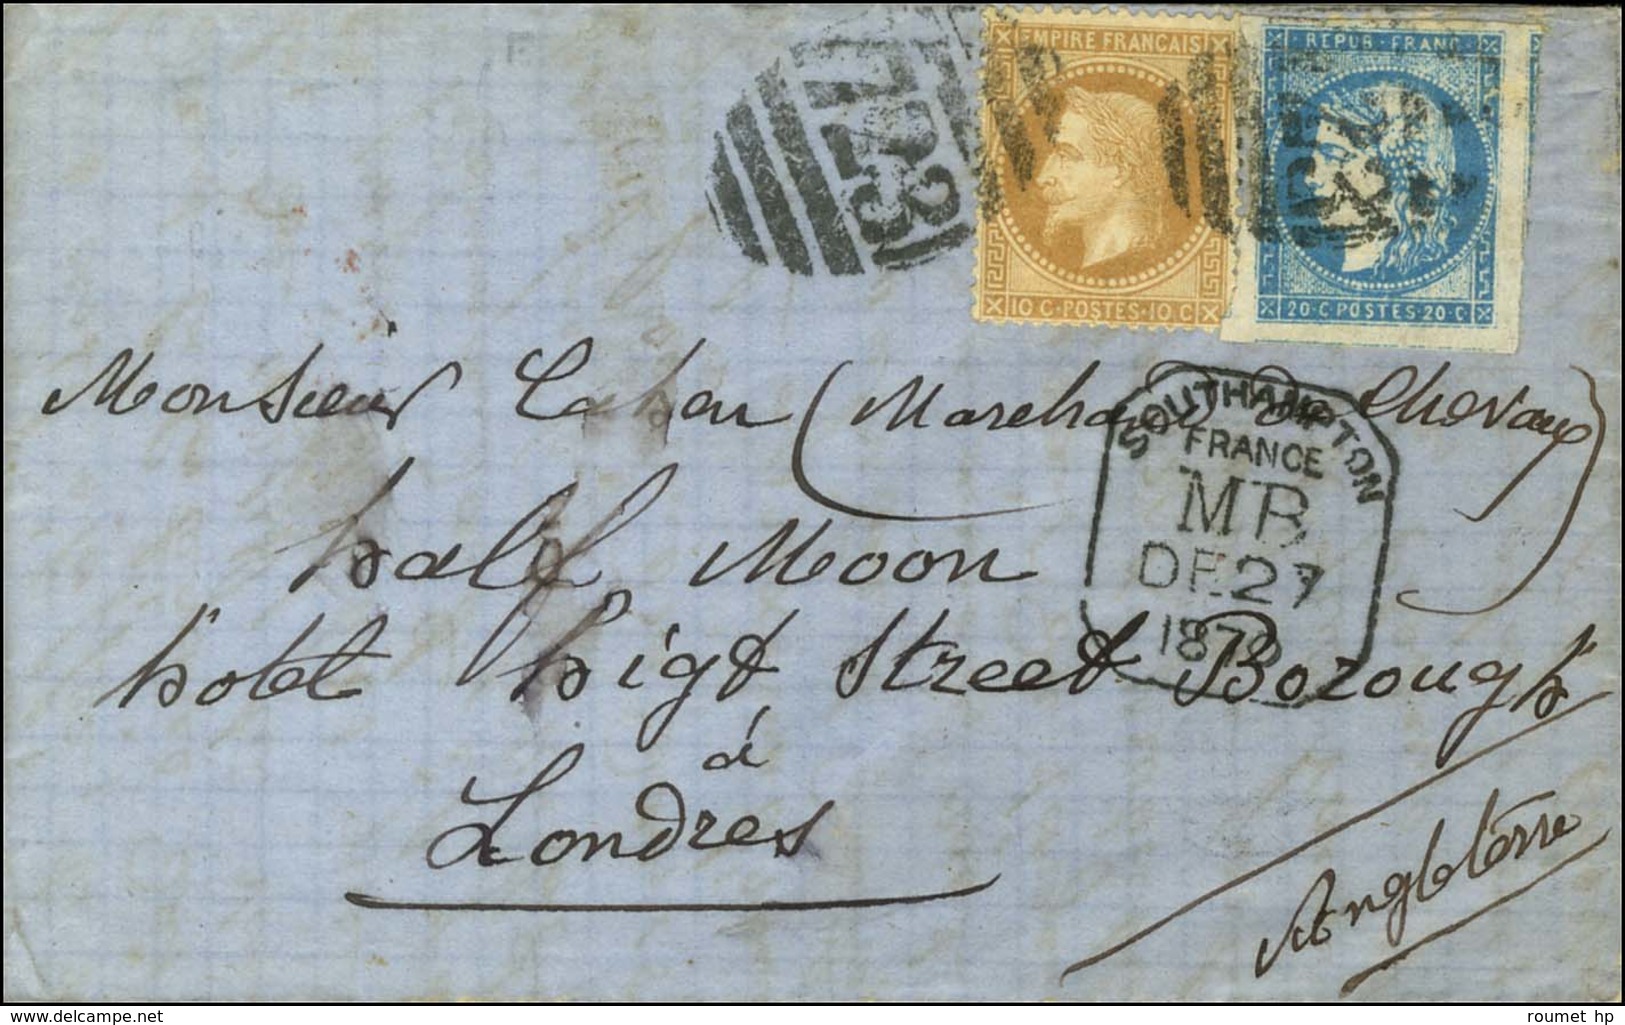 EMPIRE FRANÇAIS
10 C · POSTES · 10 C
REPUB · FRANC
20 · C POSTES · 20 · C
723
Monsieur Cahen (Marchand de Chevaux)
SOUTHAMPTON
FRANCE
MB
DE 27
1870
half Moon
hotel higt Street Borough
à
Londres
Angleterre
roumet hp